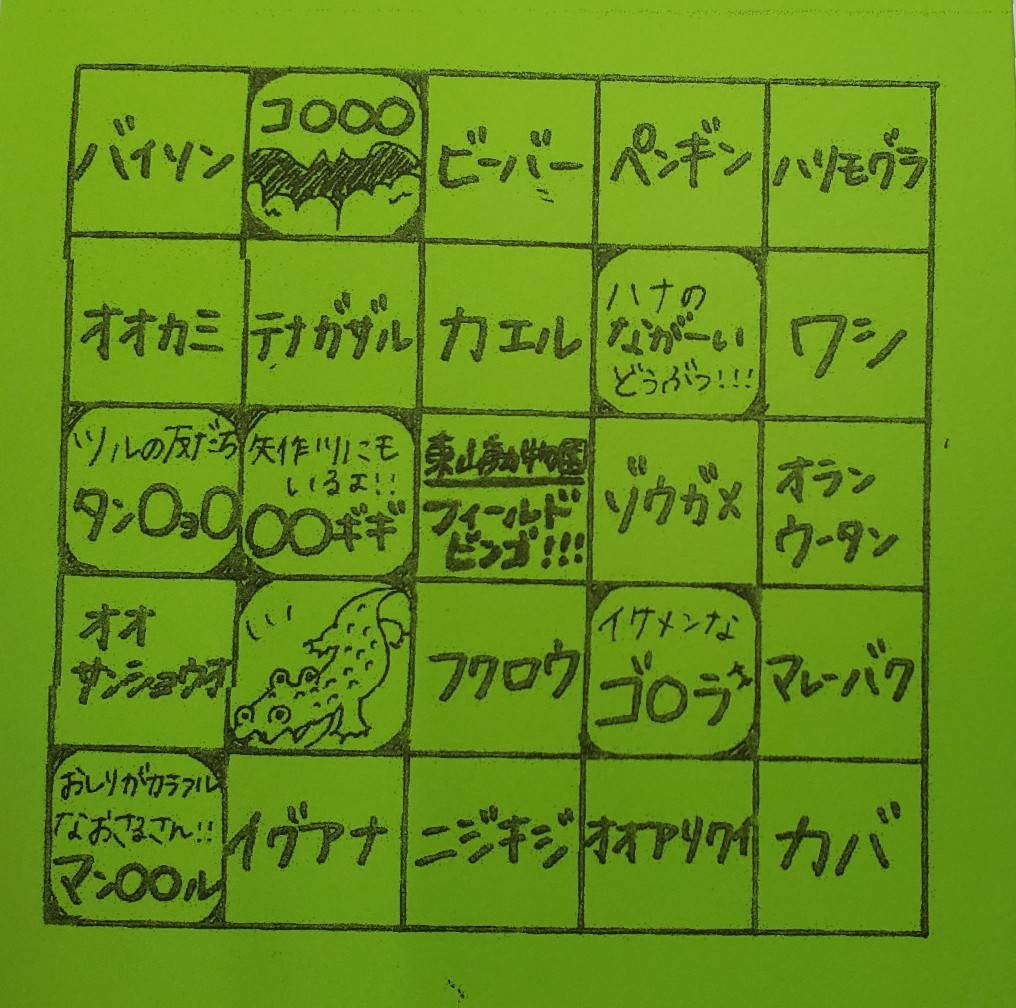 バイソン
コ〇〇〇
ビーバー
ペンギン
ハリモグラ
オオカミ
テナガザル
カエル
ハナの
ながーい
どうぶつ!!!
ワシ
ツルの友だち
タン〇ョ〇
矢作川にも
いるよ!!
〇〇ギギ
東山動物園
フィールド
ビンゴ!!!
ゾウガメ
オラン
ウータン
オオ
サンショウオ
フクロウ
イケメンな
ゴ〇ラ
マレーバク
おしりがカラフル
なおさるさん!!
マン〇〇ル
イグアナ
ニジキジ
オオアリクイ
カバ